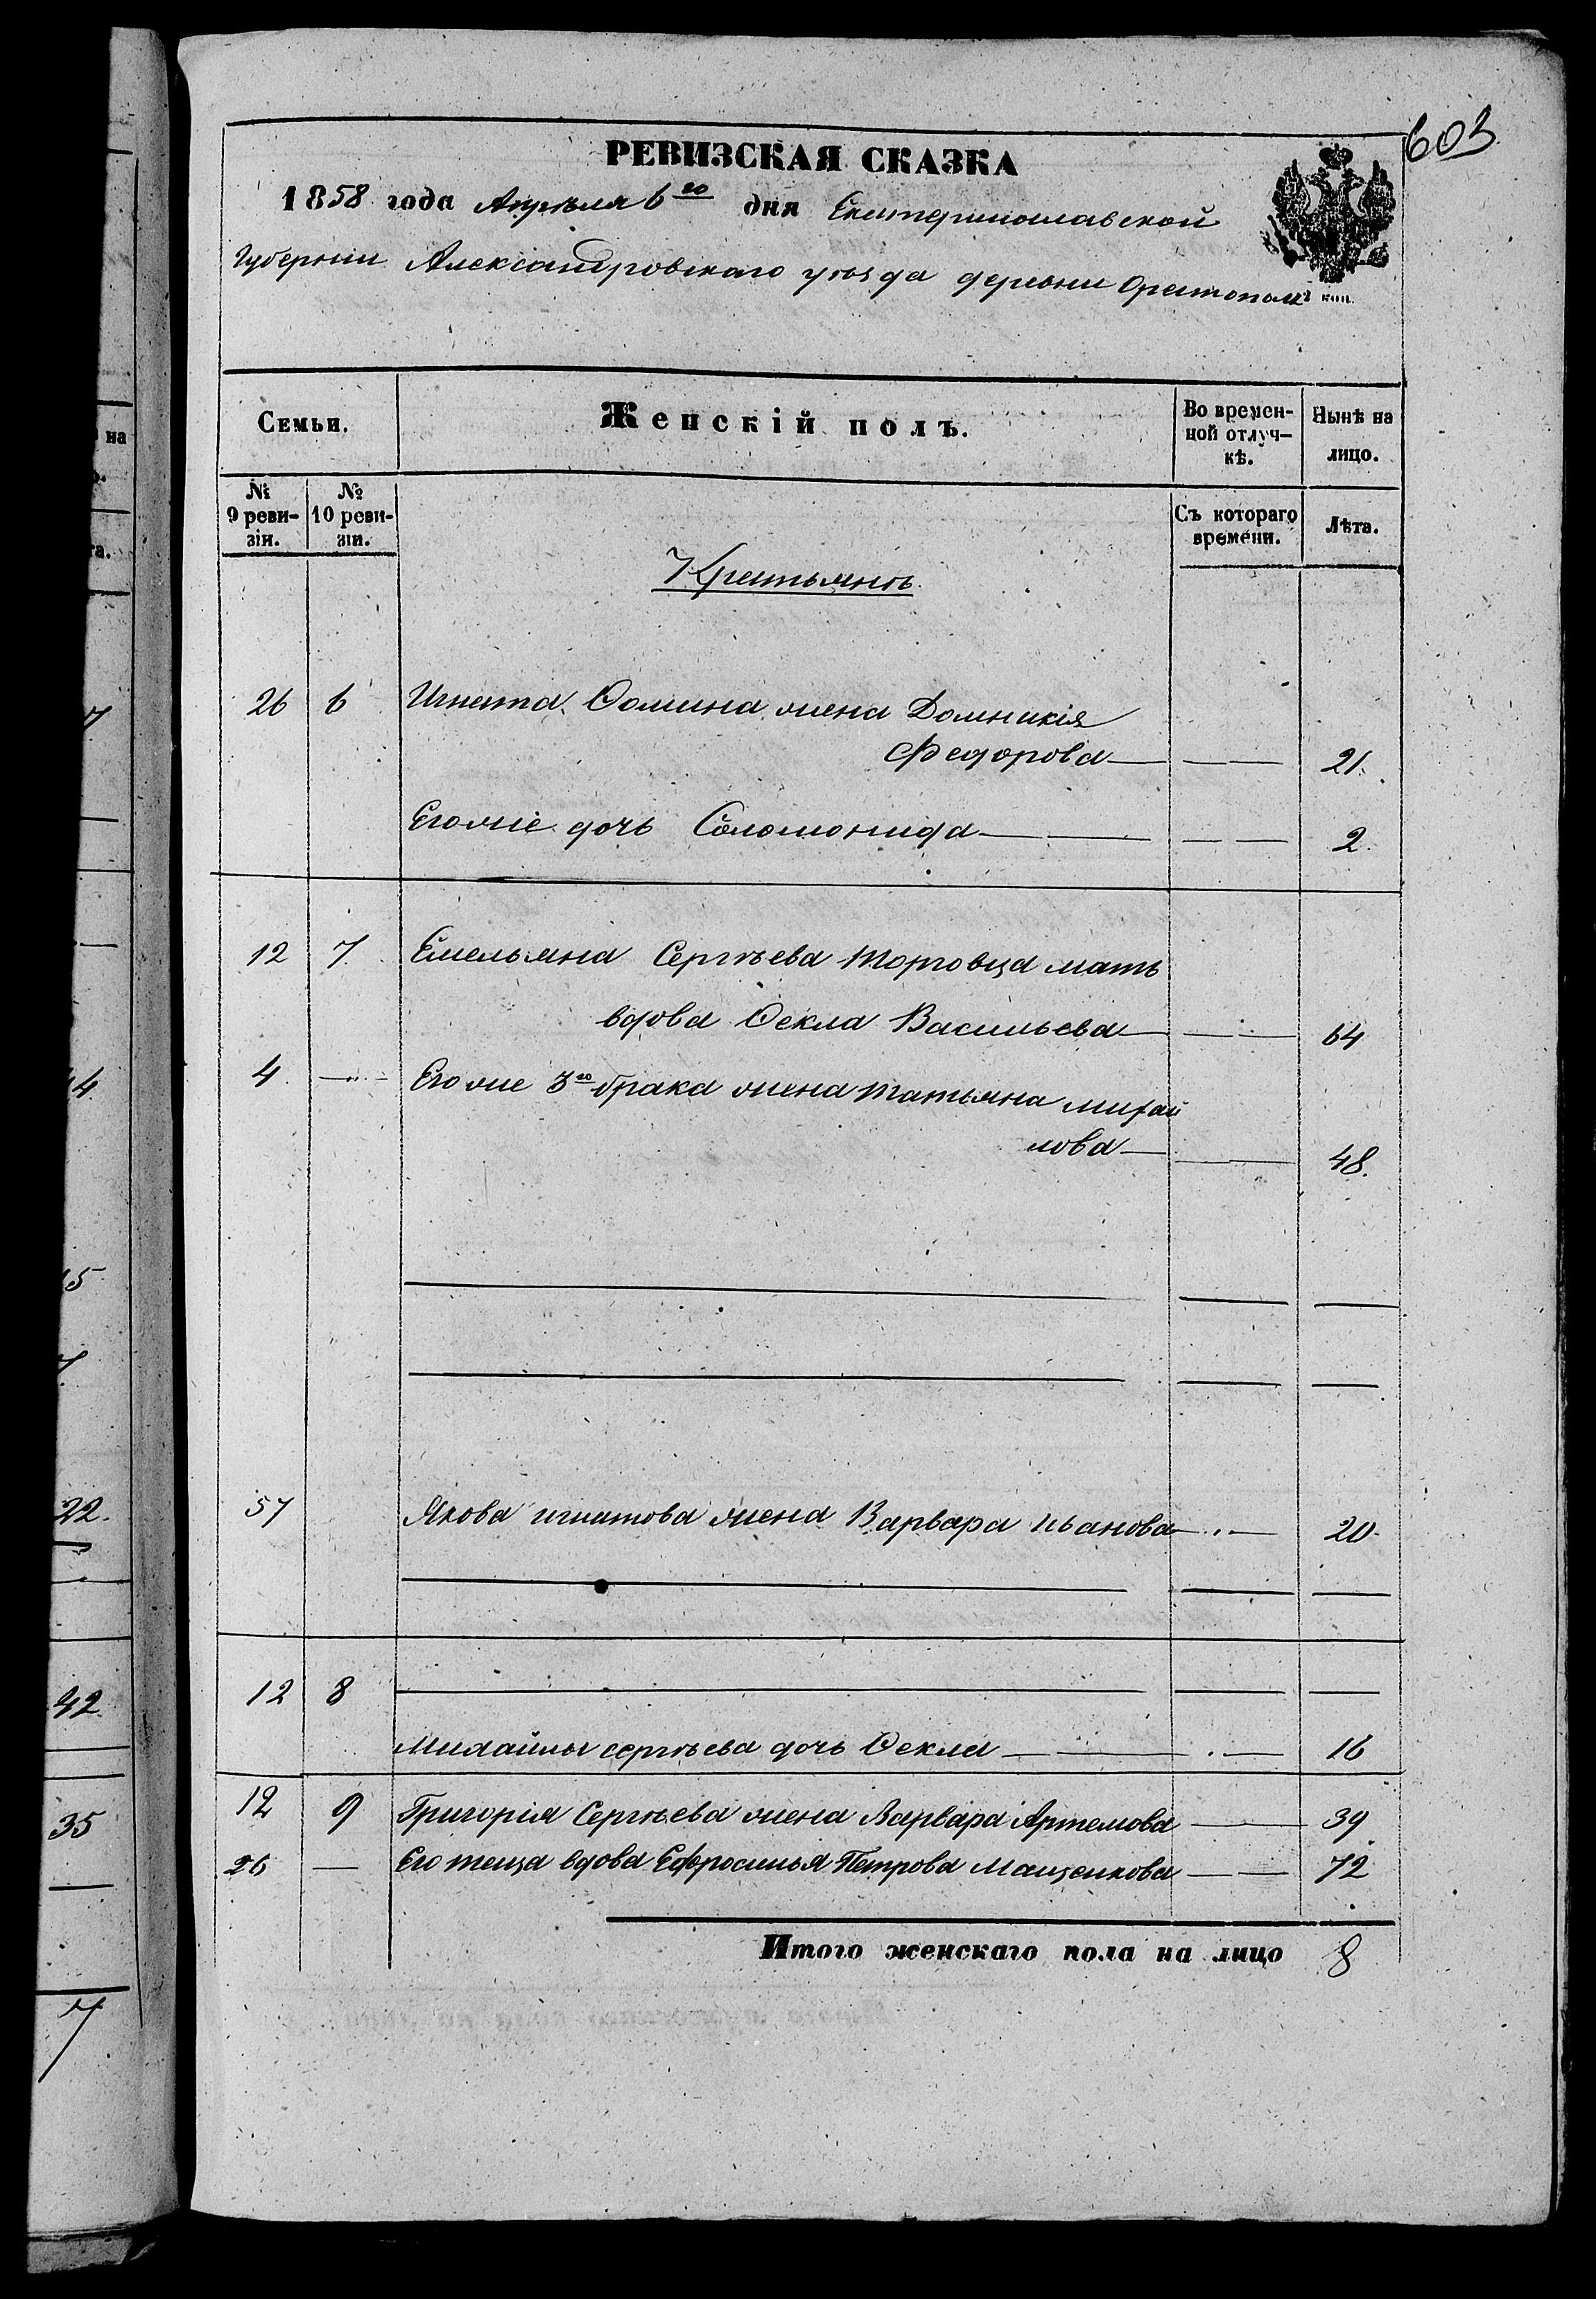 603
РЕВИЗСКАЯ СКАЗКА
1858 года Апрѣля 6го дня Екатеринославской
Губерніи Александровскаго уѣзда деревни Орестополь
коп.
Семьи. Женскій полъ. Во времен- Нынѣ на
ной отлуч- лицо.
кѣ.
№ № Съ котораго Лѣта.
9 реви- 10 реви- времени.
зіи. зіи.
Крестьянъ
26 6 Игната Ѳомина жена Домникія
Федорова 21.
Его же дочь Соломонида 2.
12 7. Емельяна Сергѣева Торговца мать
вдова Ѳекла Васильева 64
4. Его же 3го брака жена Татьяна Михай
лова 48.
57 Якова Игнатова жена Варвара Иванова 20
12 8
Михайлы Сергѣева дочь Ѳекла 16
12 9 Григорія Сергѣева жена Варвара Артемова 39
26 Его теща вдова Ефросинья Петрова Мащенкова 72
Итого женскаго пола на лицо 8
на
та.
7
14
15
7
22.
42
35
7